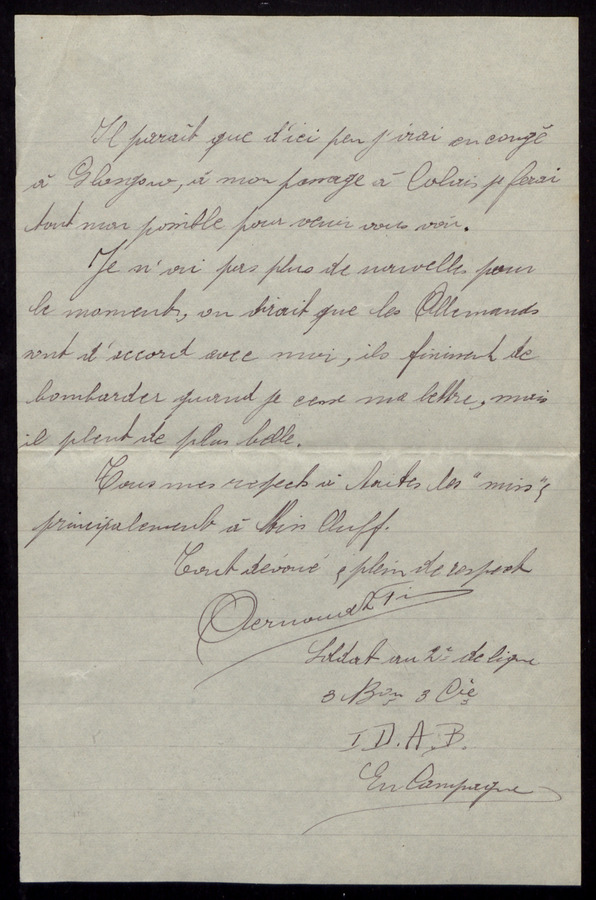 Il parait que d'ici peu j'irai en congé
à Glasgow, à mon passage à Calais je ferai
tout mon possible pour venir vous voir.
Je n'ai pas plus de nouvelles pour
le moments, on dirait que les Allemands
sont d'accord avec moi, ils finissent de
bombarder quand je cesse ma lettre, mais
il pleut de plus belle.
Tous mes respects à toutes les "miss" &
principalement à Miss Cluff.
Tout dévoué & plein de respect
Soldat au 2e de ligne
3 Bon 3 Cie
I D.A.B.
En Campagne